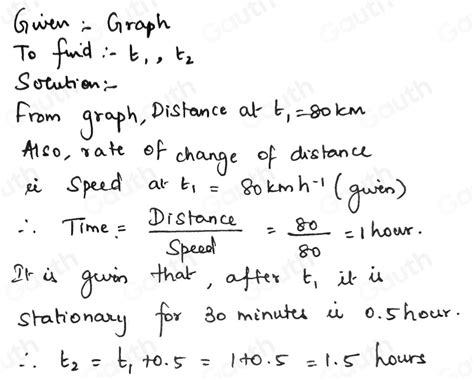 Given :- Graph
To find :- t₁, t₂
Solution:-
From graph, Distance at t₁ = 80 km
Also, rate of change of distance
ie Speed at t₁ = 80 km h⁻¹ (given)
∴ Time = Distance/Speed = 80/80 = 1 hour.
It is given that, after t₁ it is
stationary for 30 minutes ie 0.5 hour.
∴ t₂ = t₁ + 0.5 = 1+0.5 = 1.5 hours